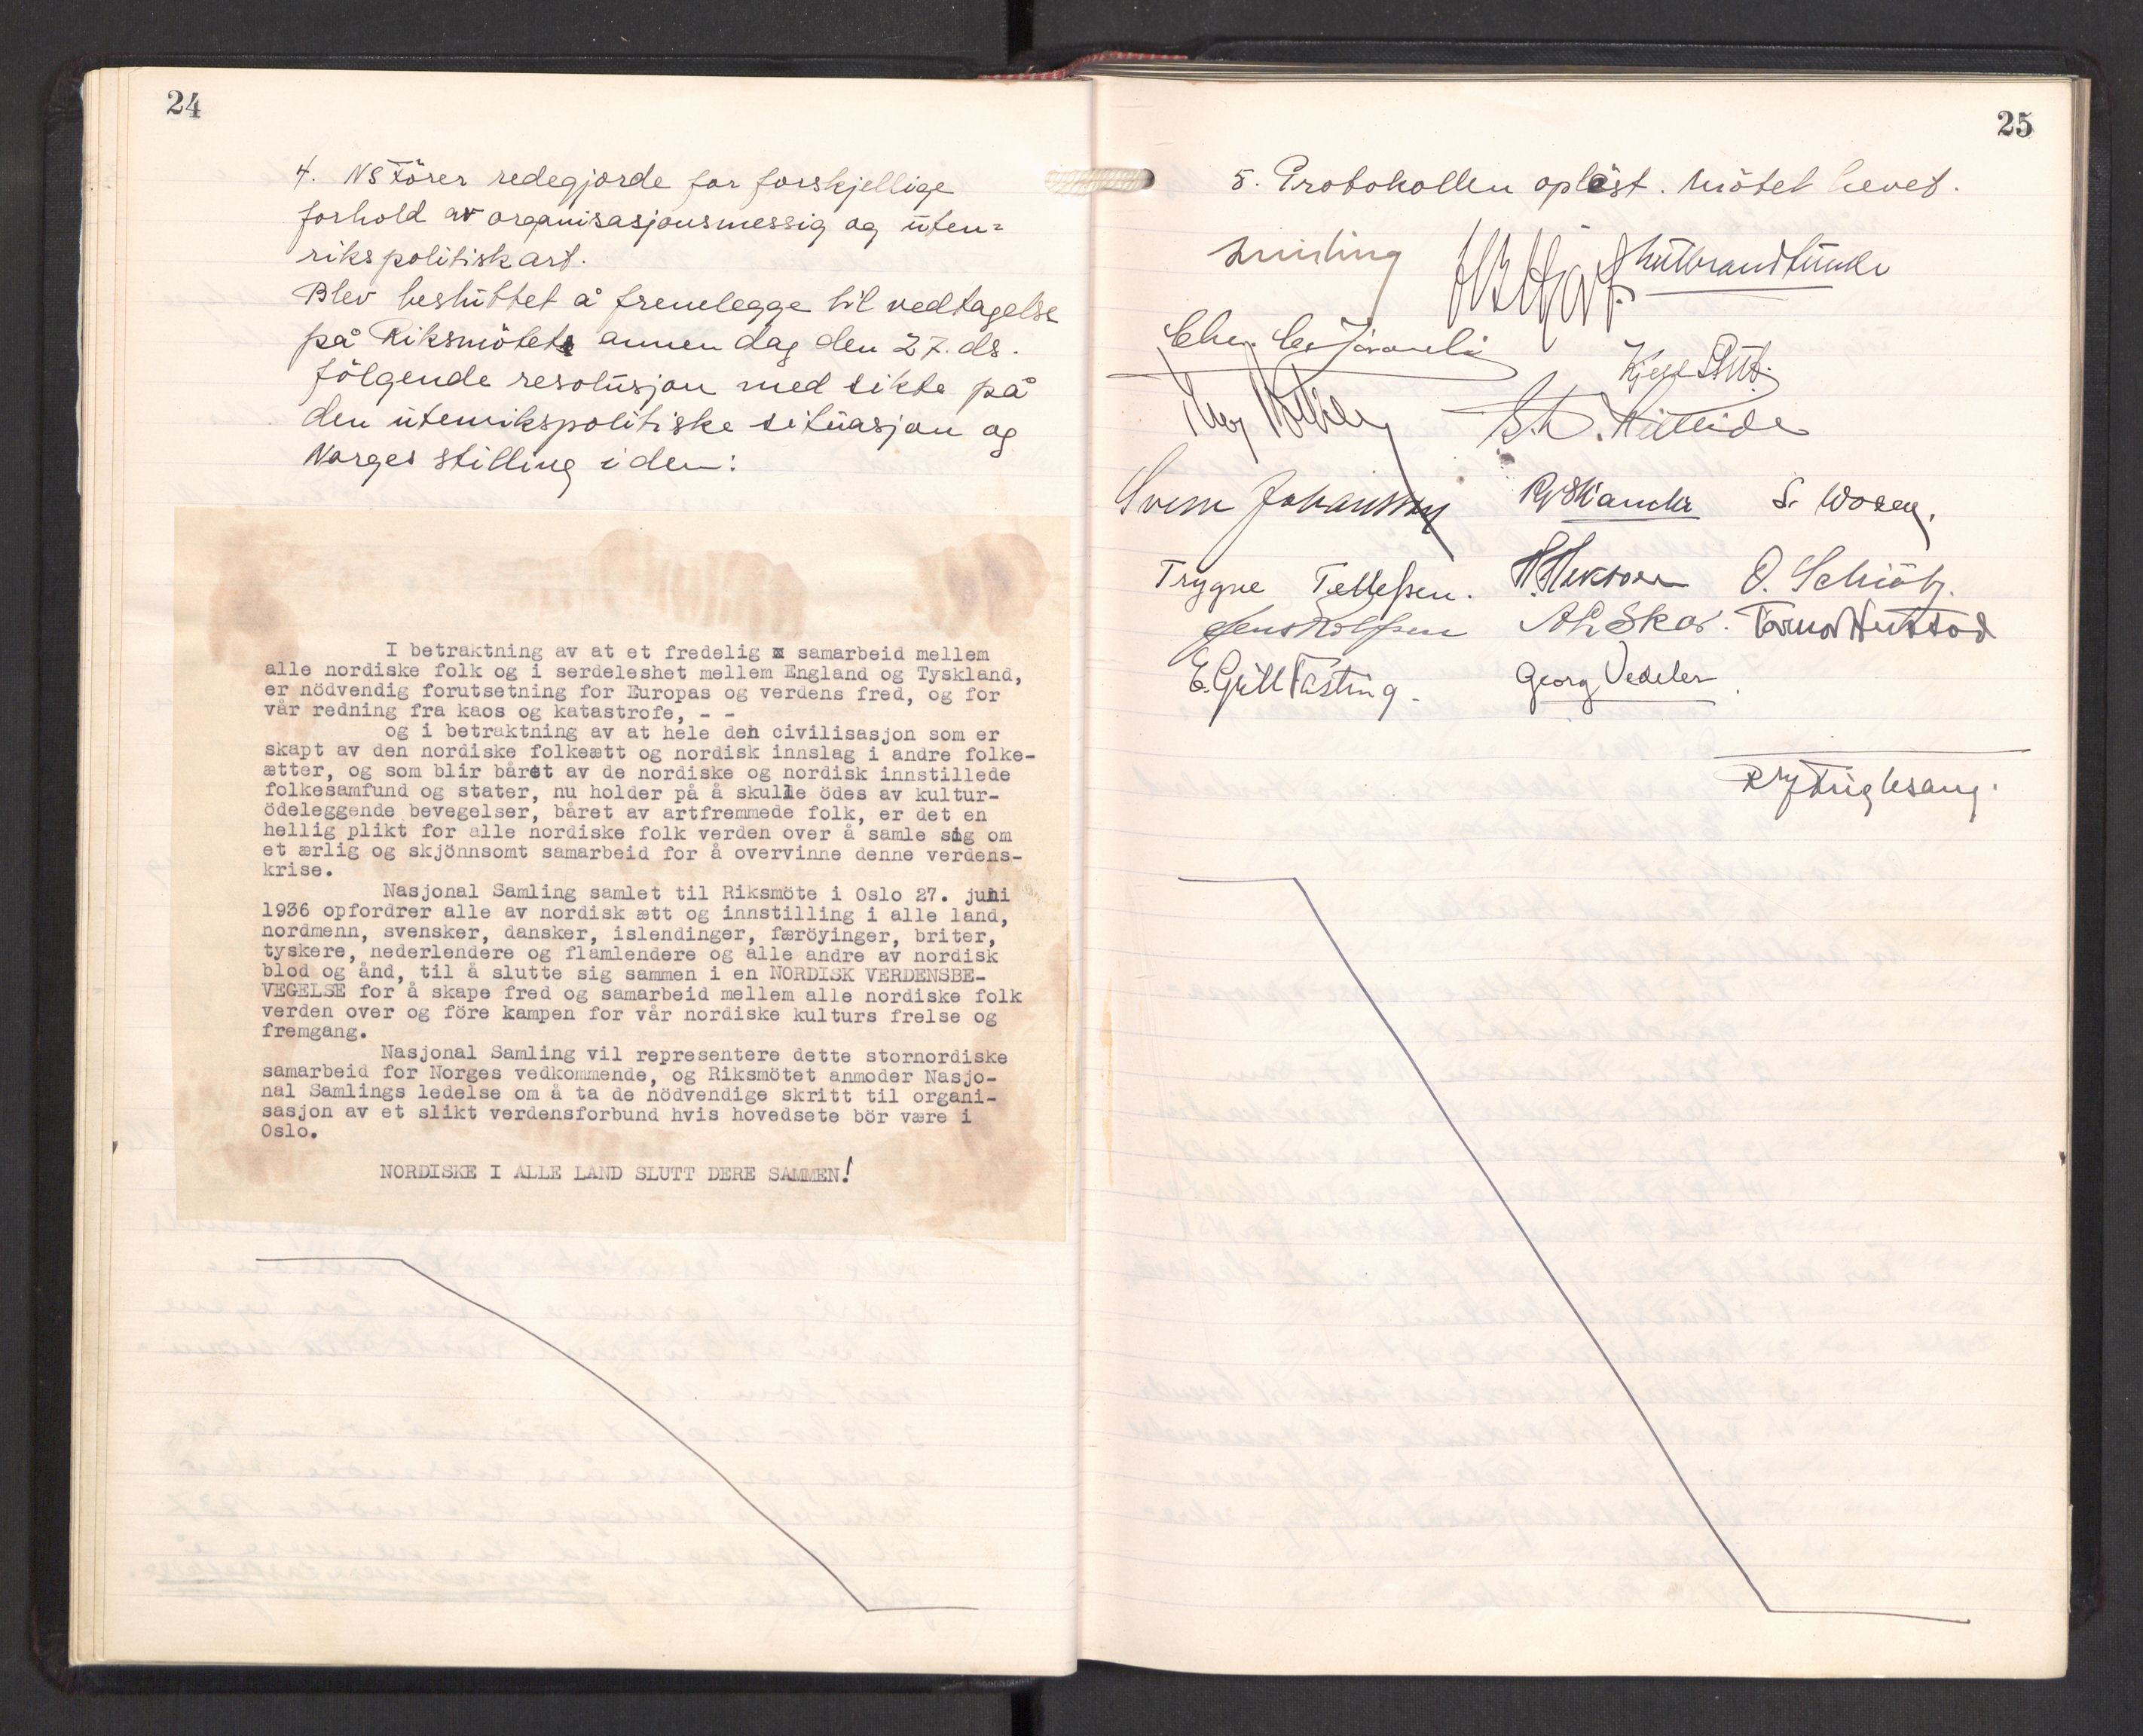 24
4. NS Förer redegjorde for forskjellige
forhold av organisasjonsmessig og uten=
rikspolitisk art.
Blev besluttet å fremlegge til vedtagelse
på Riksmötets annen dag den 27. ds.
fölgende resolusjon med sikte på
den utenrikspolitiske situasjon og
Norges stilling i den:
I betraktning av at et fredelig samarbeid mellem
alle nordiske folk og i serdeleshet mellem England og Tyskland,
er nödvendig forutsetning for Europas og verdens fred, og for
vår redning fra kaos og katastrofe, - -
og i betraktning av at hele den civilisasjon som er
skapt av den nordiske folkeætt og nordisk innslag i andre folke-
ætter, og som blir båret av de nordiske og nordisk innstillede
folkesamfund og stater, nu holder på å skulle ödes av kultur-
ödeleggende bevegelser, båret av artfremmede folk, er det en
hellig plikt for alle nordiske folk verden over å samle sig om
et ærlig og skjönnsomt samarbeid for å overvinne denne verdens-
krise.
Nasjonal Samling samlet til Riksmöte i Oslo 27. juni
1936 opfordrer alle av nordisk ætt og innstilling i alle land,
nordmenn, svensker, dansker, islendinger, færöyinger, briter,
tyskere, nederlendere og flamlendere og alle andre av nordisk
blod og ånd, til å slutte sig sammen i en NORDISK VERDENSBE-
VEGELSE for å skape fred og samarbeid mellem alle nordiske folk
verden over og före kampen for vår nordiske kulturs frelse og
fremgang.
Nasjonal Samling vil representere dette stornordiske
samarbeid for Norges vedkommende, og Riksmötet anmoder Nasjo-
nal Samlings ledelse om å ta de nödvendige skritt til organi-
sasjon av et slikt verdensforbund hvis hovedsete bör være i
Oslo.
NORDISKE I ALLE LAND SLUTT DERE SAMMEN!
25
5. Protokollen oplest. Mötet hevet.
Quisling
Gulbrand Lunde
Svein Johansson
S. Wosen.
Trygve Tellefsen. O. Schiötz.
Jens Rolfsen A L Skar. Tormod Hustad
E. Gill Fasting. Georg Vedeler
R J Fuglesang.